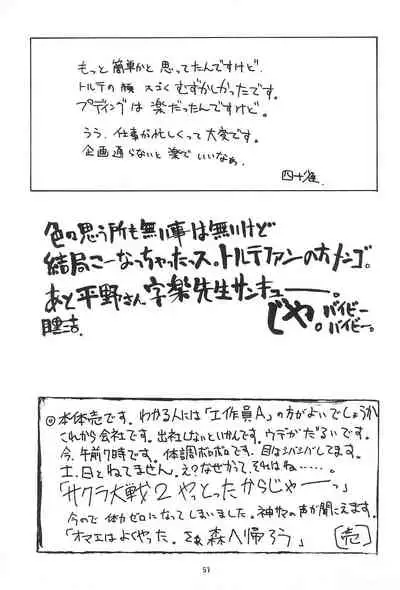 もっと簡単かと思ってたんですけど、
トルテの顔 スゴくむずかしかったです。
プディングは楽だったんですけど。
うう、仕事が忙しくって大変です。
企画通らないと楽でいいなぁ。
四十雀
色の思う所も無い事は無いけど
結局こーなっちゃったっス。トルテファンの方メンゴ。
あと平野さん、宇楽先生サンキュー。
じゃ。バイビーバイビー。
⦿本体売です。わかる人には「工作員A」の方がよいでしょうか
これから会社です。出社しないといかんです。ウデがだるいです。
今、午前7時です。体調ボロボロです。目なシバシバしてます。
土、日とねてません。え? なぜかって、それはね……。
「サクラ大戦2 やっとったからじゃーっ」
今ので体力ゼロになってしまいました。神サマの声が聞こえます。
「オマエはよくやった。森へ帰ろう」
[売]
51